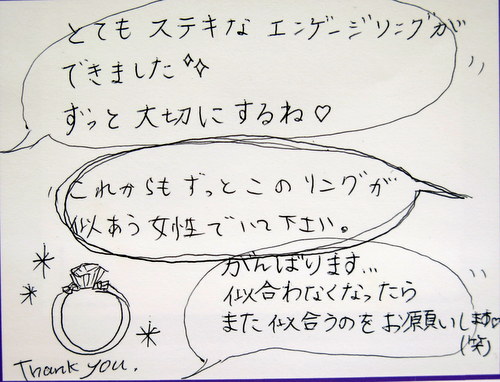 とても ステキな エンゲージリングが
できました
ずっと 大切にするね♡
これからも ずっと この リングが
似あう 女性でいて下さい。
がんばります…
似合わなくなったら
また 似合うのを お願いします♡
(笑)
Thank you.